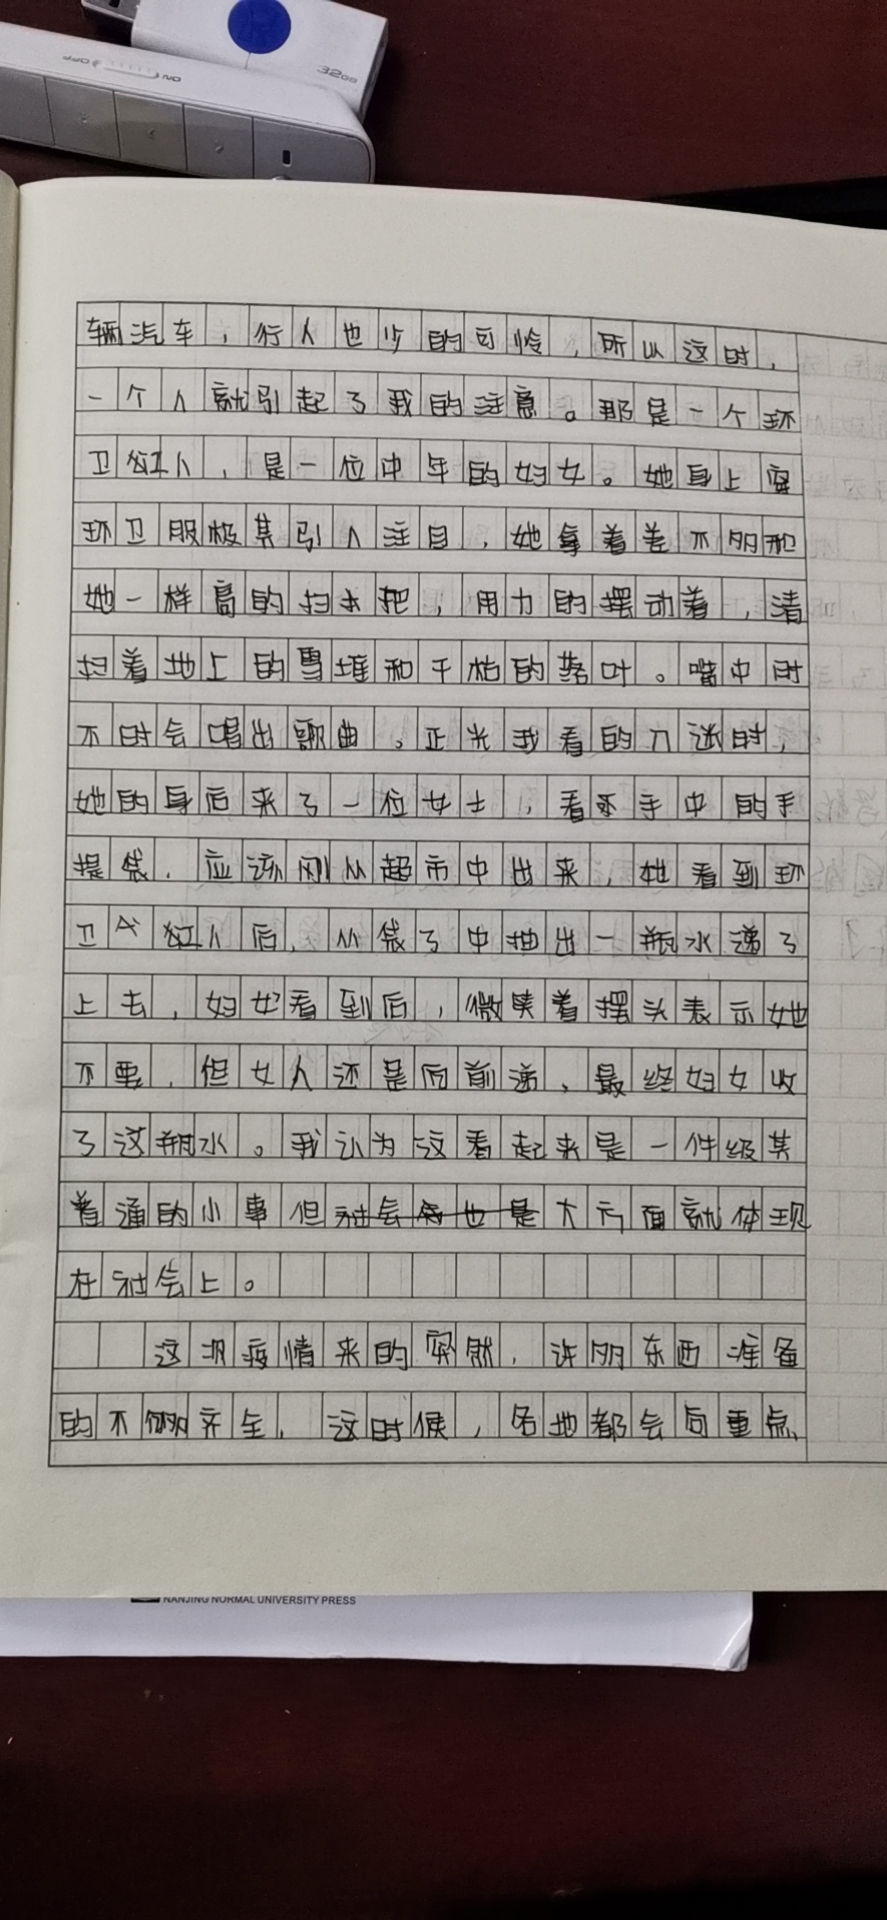 32GB
OFF ON
辆汽车，行人也少的可怜，所以这时，
一个人就引起了我的注意。那是一个环
卫红人，是一位中年的妇女。她身上穿
环卫服极其引人注目，她拿着差不多和
她一样高的扫水把，用力的摆动着，清
扫着地上的雪堆和干枯的落叶。嘴中时
不时会唱出歌曲。正光我看的入迷时，
她的身后来了一位女士，看手中的手
提袋，应该刚从超市中出来，她看到环
卫红人后，从袋子中抽出一瓶水递了
上去，妇女看到后，微笑着摆头表示她
不要，但女人还是向前递，最终妇女收
了这瓶水。我认为这看起来是一件级其
普通的小事但大方面就体现
在社会上。
这次疫情来的突然，许多东西准备
的不够齐全，这时候，各地都会向重点
NANJING NORMAL UNIVERSITY PRESS